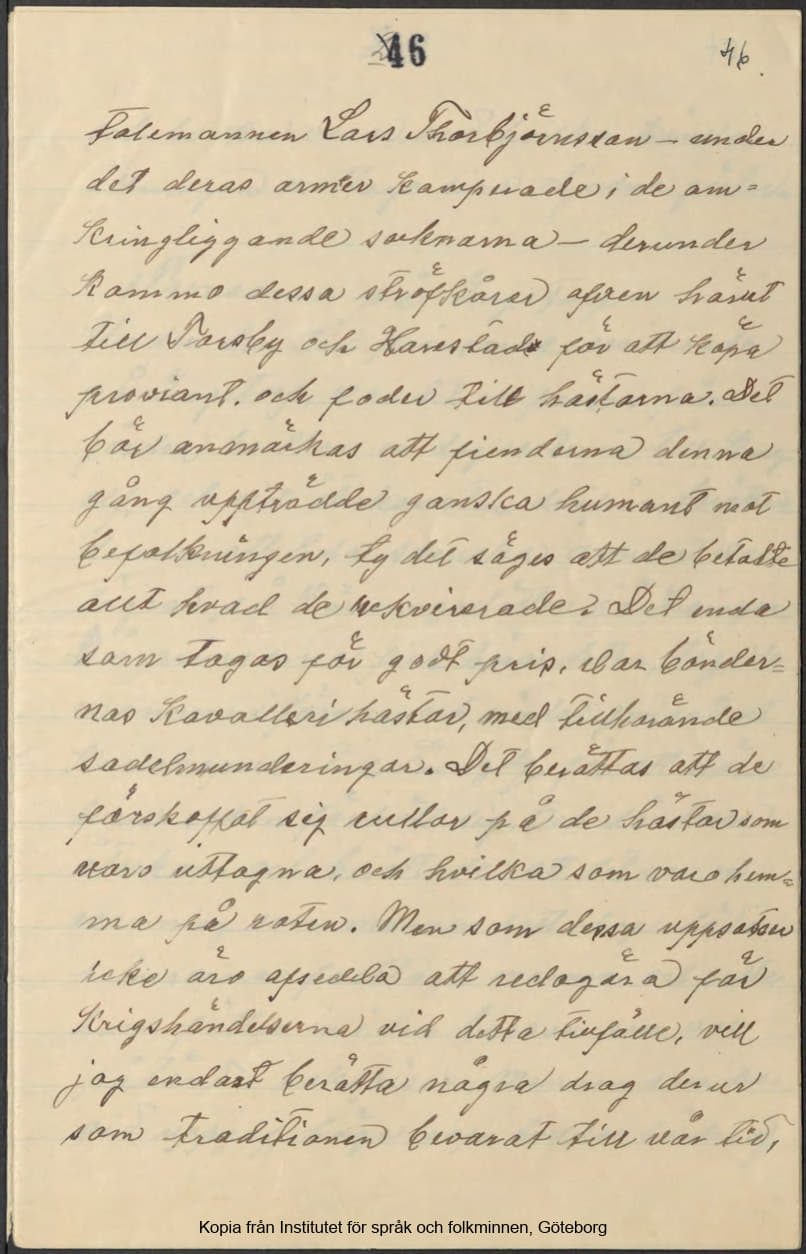 46
46.
talemannen Lars Thorbjörnsson — under
det deras arméer kamperade i de om=
kringliggande socknarna — derunder
kommo dessa ströfkårer äfven härut
till Torsby och Harestad för att köpa
proviant. och foder till hästarna. Det
bör anmärkas att fienderna denna
gång uppträdde ganska humant mot
befolkningen, ty det säges att de betalte
allt hvad de rekvirerade. Det enda
som togos för godt pris, var bönder=
nas Kavalleri hästar, med tillhörande
sadelmunderingar. Det berättas att de
förskaffat sig rullor på de hästar som
voro uttagna, och hvilka som voro hem=
ma på roten. Men som dessa uppsatser
icke äro afsedda att redogöra för
Krigshändelserna vid detta tillfälle, vill
jag endast berätta några drag derur
som traditionen bevarat till vår tid,
Kopia från Institutet för språk och folkminnen, Göteborg